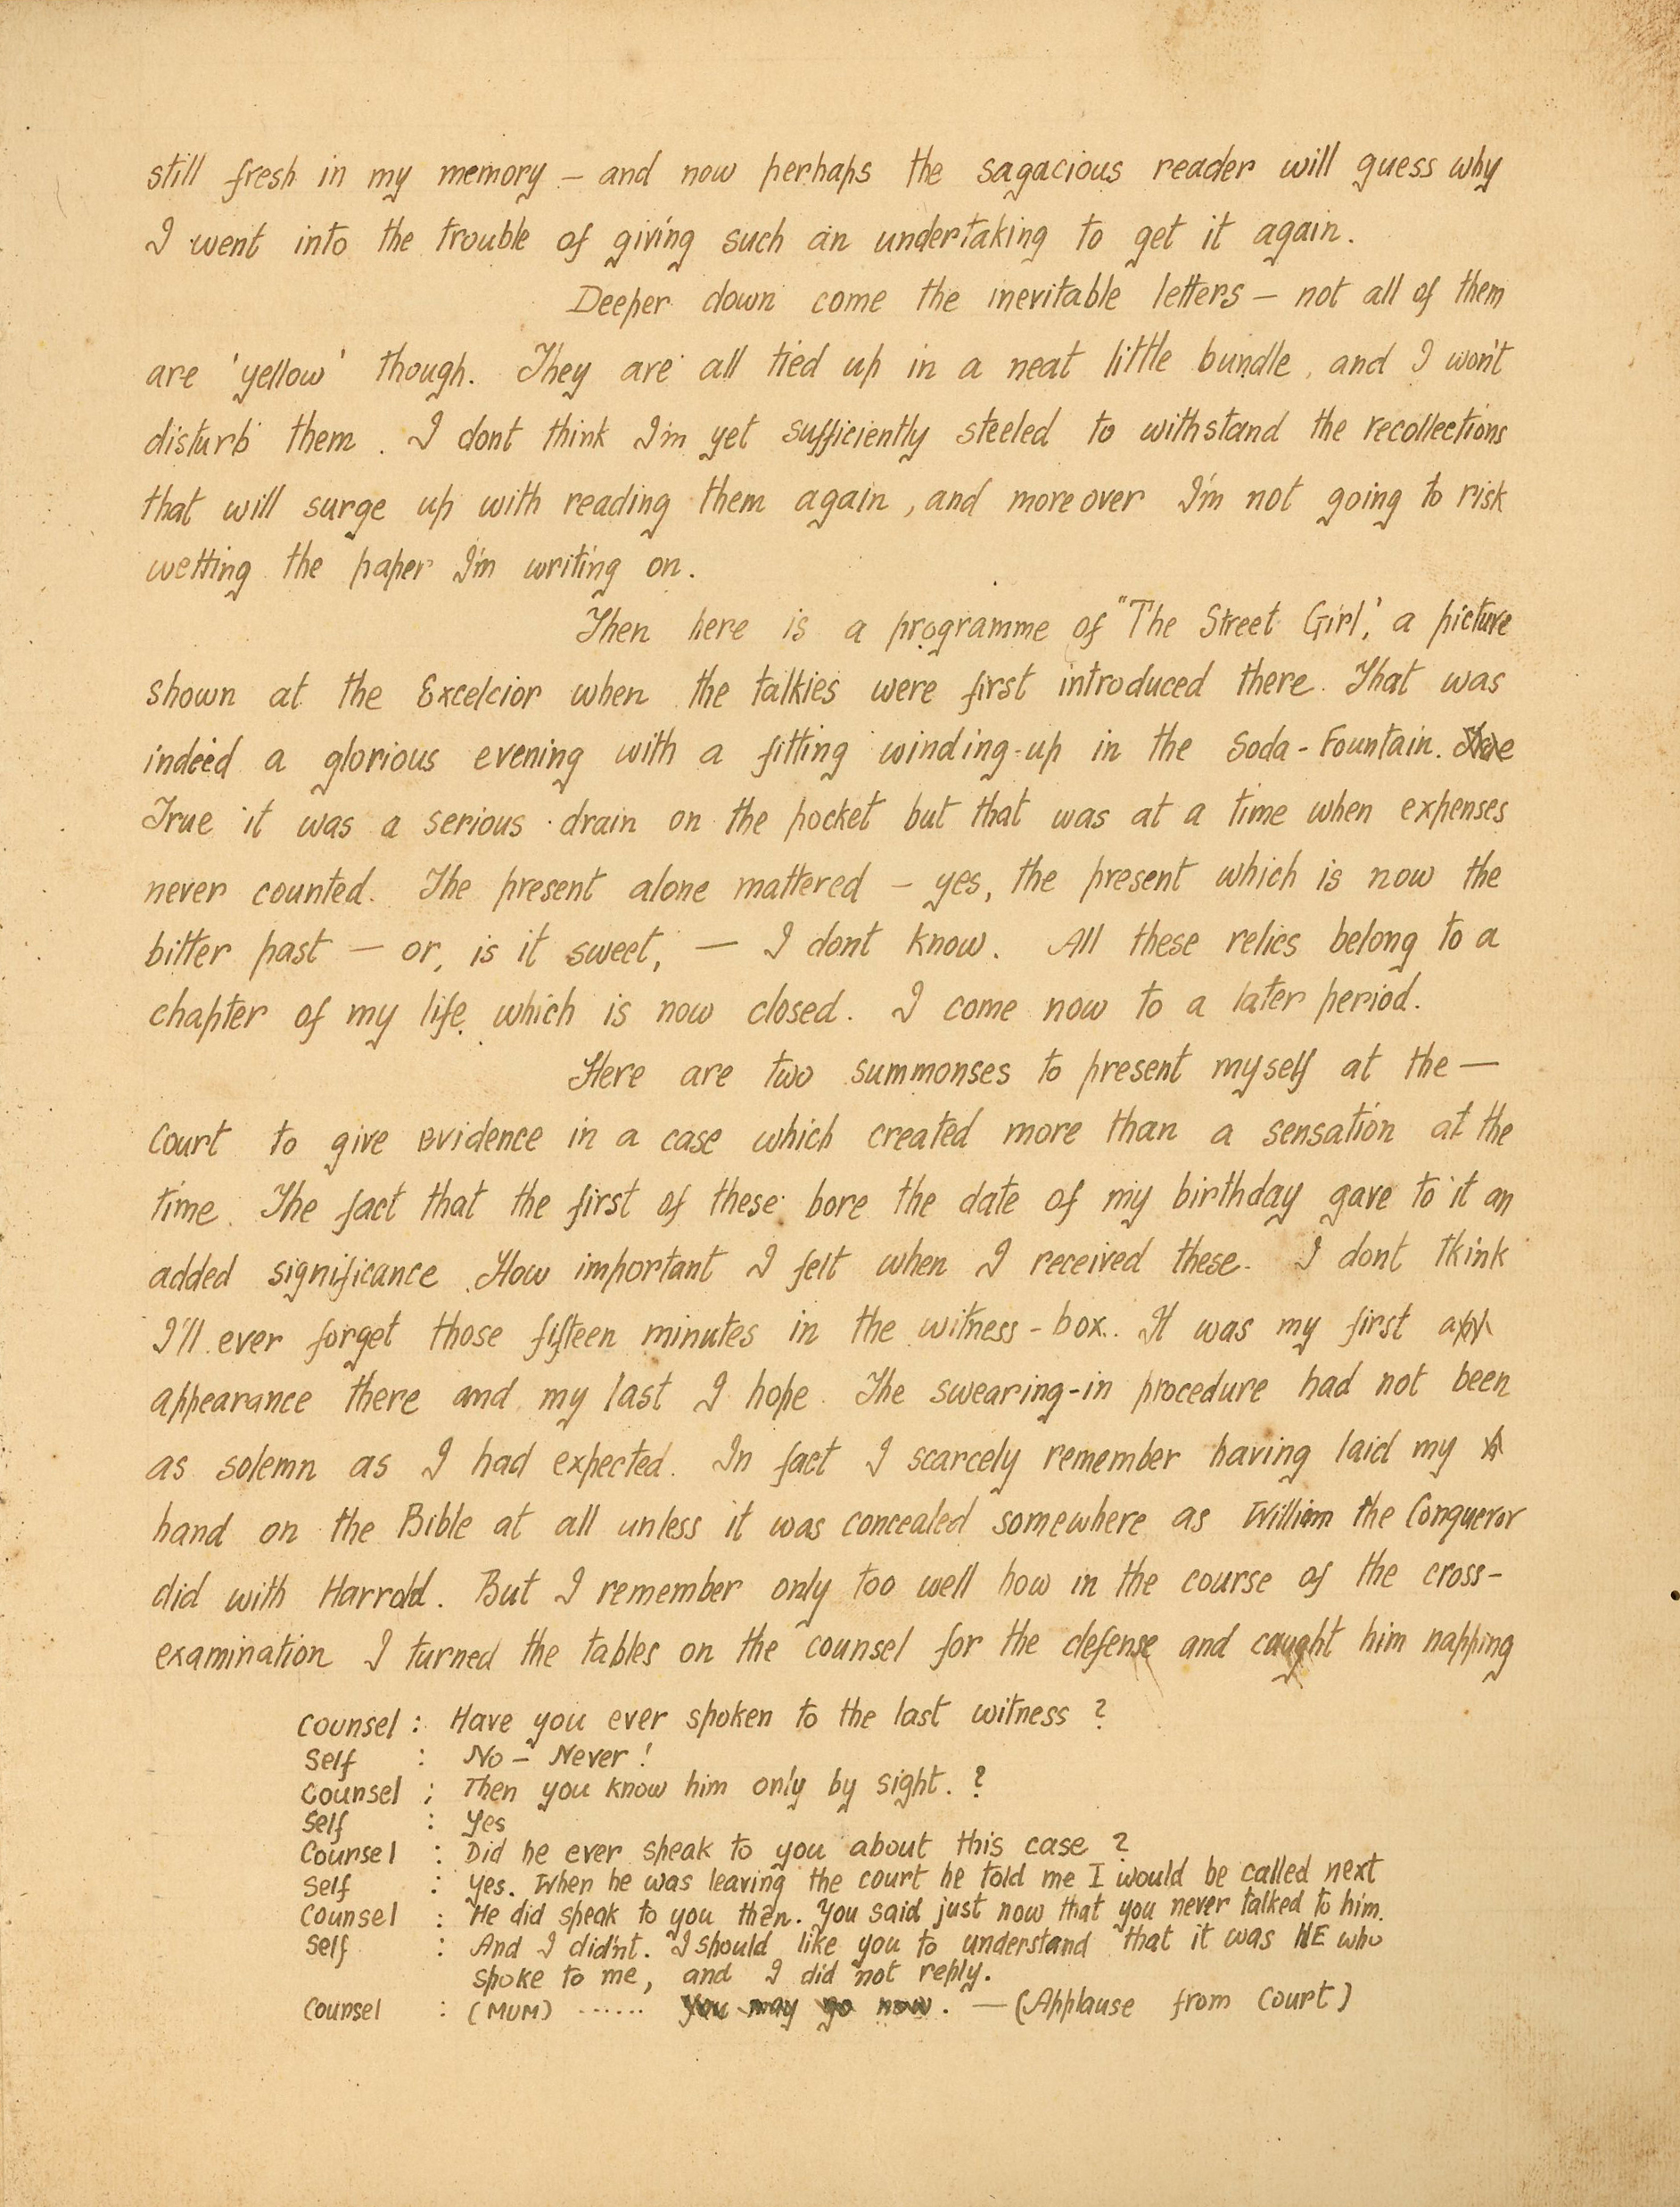 still fresh in my memory – and now perhaps the sagacious reader will guess why
I went into the trouble of giving such an undertaking to get it again.
Deeper down come the inevitable letters – not all of them
are 'yellow' though. They are all tied up in a neat little bundle, and I won't
disturb them. I dont think I'm yet sufficiently steeled to withstand the recollections
that will surge up with reading them again, and moreover I'm not going to risk
wetting the paper I'm writing on.
Then here is a programme of "The Street Girl', a picture
shown at the Excelcior when the talkies were first introduced there. That was
indeed a glorious evening with a fitting winding-up in the Soda-Fountain.
True it was a serious drain on the pocket but that was at a time when expenses
never counted. The present alone mattered – yes, the present which is now the
bitter past – or, is it sweet, – I dont know. All these relics belong to a
chapter of my life which is now closed. I come now to a later period.
Here are two summonses to present myself at the –
Court to give evidence in a case which created more than a sensation at the
time. The fact that the first of these bore the date of my birthday gave to it an
added significance. How important I felt when I received these. I dont tkink
I'll ever forget those fifteen minutes in the witness-box. It was my first app
appearance there and my last I hope. The swearing-in procedure had not been
as solemn as I had expected. In fact I scarcely remember having laid my
hand on the Bible at all unless it was concealed somewhere as William the Conqueror
did with Harrold. But I remember only too well how in the course of the cross-
examination I turned the tables on the counsel for the defense and caught him napping
Counsel : Have you ever spoken to the last witness ?
Self : No – Never !
Counsel ; Then you know him only by sight. ?
Self : Yes
Counsel : Did he ever speak to you about this case ?
Self : Yes. When he was leaving the court he told me I would be called next
Counsel : He did speak to you then. You said just now that you never talked to him.
Self : And I did'nt. I should like you to understand that it was HE who
spoke to me, and I did not reply.
Counsel : (MUM) ...... You may go now. – (Applause from Court)